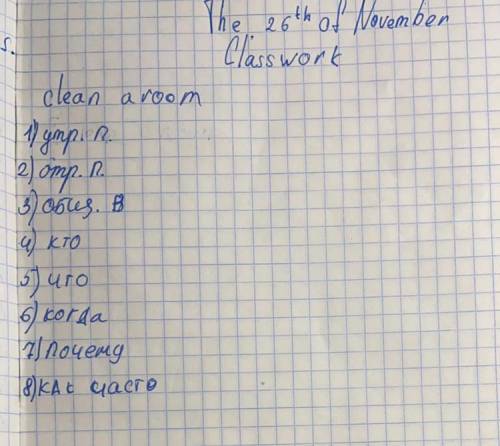 The 26th of November
s.
Classwork
clean a room
1) утр. п.
2) отр. п.
3) общ. В
4) кто
5) что
6) когда
7) Почему
8) КАк часто